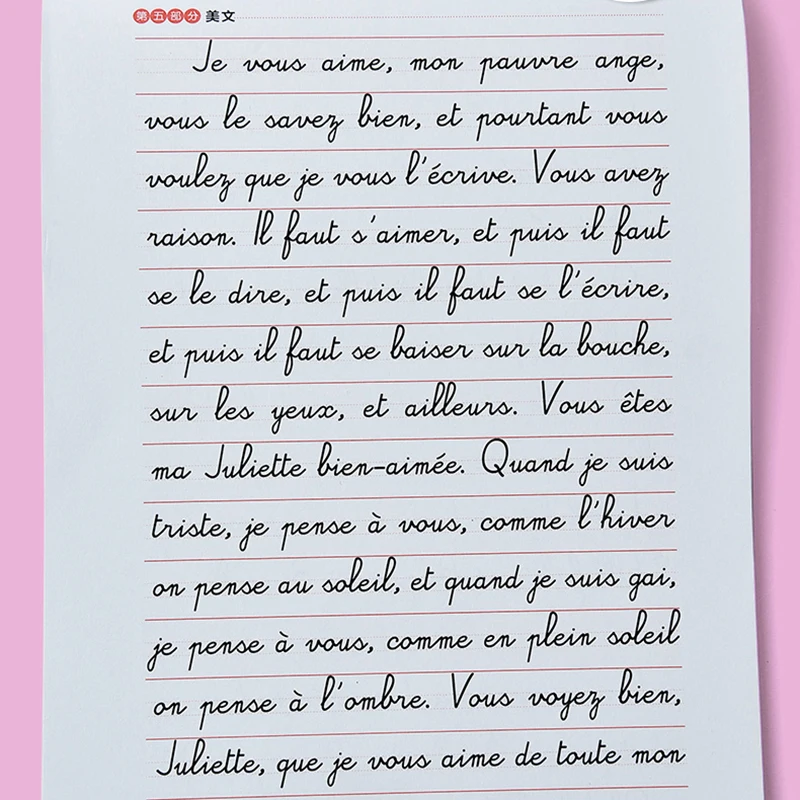 第五部分 美文
Je vous aime, mon pauvre ange,
vous le savez bien, et pourtant vous
voulez que je vous l'écrive. Vous avez
raison. Il faut s'aimer, et puis il faut
se le dire, et puis il faut se l'écrire,
et puis il faut se baiser sur la bouche,
sur les yeux, et ailleurs. Vous êtes
ma Juliette bien-aimée. Quand je suis
triste, je pense à vous, comme l'hiver
on pense au soleil, et quand je suis gai,
je pense à vous, comme en plein soleil
on pense à l'ombre. Vous voyez bien,
Juliette, que je vous aime de toute mon